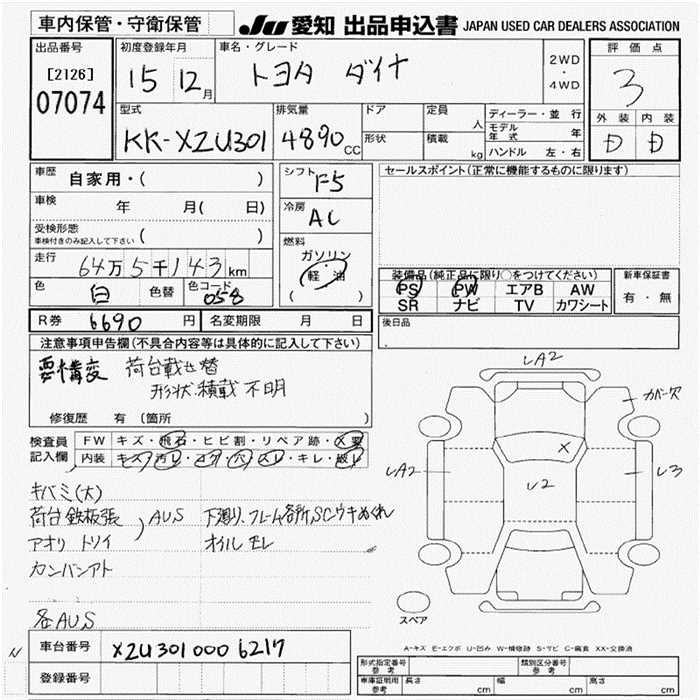 車内保管・守衛保管
JU 愛知 出品申込書 JAPAN USED CAR DEALERS ASSOCIATION
出品番号
[2126]
07074
初度登録年月
15 12月
車名・グレード
トヨタ ダイナ
2WD
・
4WD
評価点
3
外装 内装
D D
型式
KK-XZU301
排気量
4890CC
ドア
形状
定員
人
積載
kg
ディーラー・並行
モデル年式 年
ハンドル 左・右
車歴
自家用・( )
車検
年 月( 日)
受検形態
車検付きのみ記入して下さい ( )
走行
64万5千143km
色
白
色替
色コード
058
シフト
F5
冷房
AC
燃料
ガソリン
軽油
( )
セールスポイント(正常に機能するものに限ります)
装備品(純正品に限り○をつけてください)
PS PW エアB AW
SR ナビ TV カワシート
新車保証書
有・無
R券 6690円
名変期限 月 日
後日品
注意事項申告欄(不具合内容等は具体的に記入して下さい)
要構変 荷台載せ替
形状、積載 不明
修復歴 有 (箇所 )
検査員記入欄
FW キズ・飛石・ヒビ割・リペア跡・X要
内装 キズ・汚レ・コゲ・穴・スレ・キレ・破レ
キバミ(大)
荷台鉄板張
アオリ トリイ
AUS
カンバンアト
各AUS
下廻り、フレーム各所SCウキめくれ
オイルモレ
LA2
カバー欠
LA2
X
L2
L3
スペア
A-キズ E-エクボ U-凹み W-補修跡 S-サビ C-腐食 XX-交換済
車台番号 XZU301 000 6217
登録番号
形式指定番号
参考
類別区分番号
参考
車庫証明用
参考
長さ cm
幅 cm
高さ cm